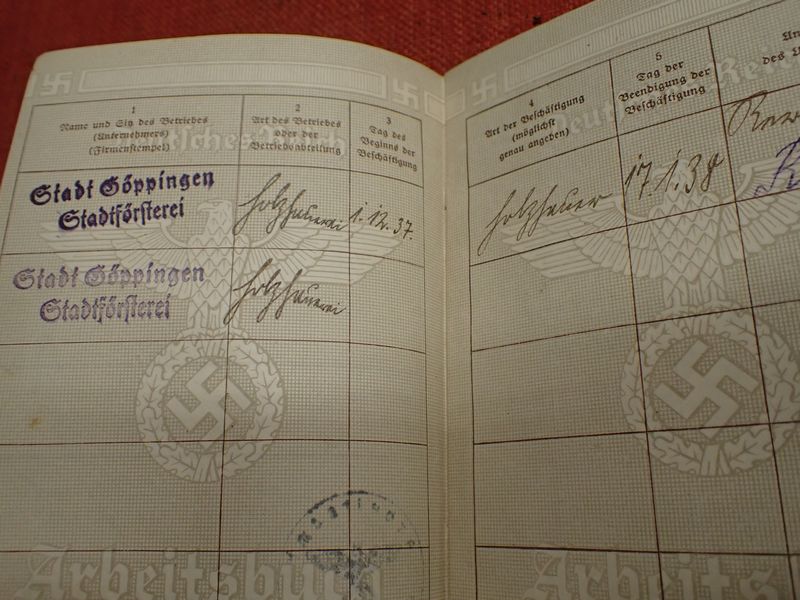 1
Name und Sitz des Betriebes
(Unternehmers)
(Firmenstempel)
2
Art des Betriebes
oder der
Betriebsabteilung
3
Tag des
Beginns der
Beschäftigung
Stadt Göppingen
Stadtförsterei
Holzhauerei
1.12.37.
Stadt Göppingen
Stadtförsterei
Holzhauerei
4
Art der Beschäftigung
(möglichst
genau angeben)
5
Tag der
Beendigung der
Beschäftigung
des
Holzhauer
17.1.38
Deutsches Reich
Arbeitsbuch
Deutsches Reich
Arbeits